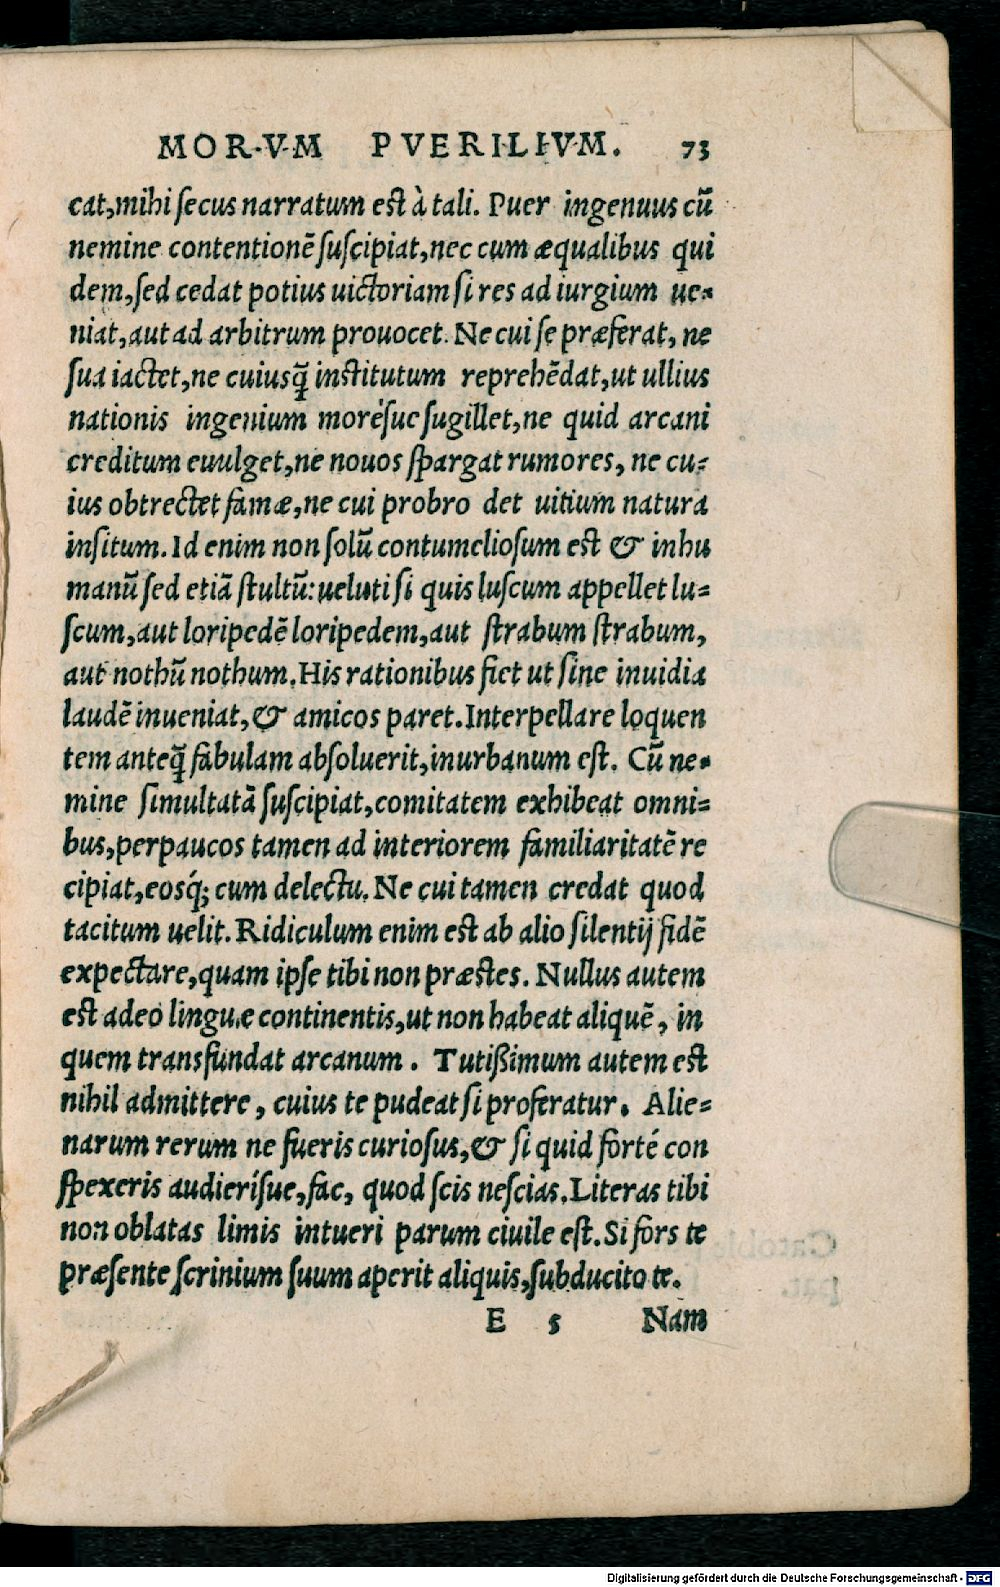 MORVM PVERILIVM. 73
cat,mihi ſecus narratum eſt à tali. Puer ingenuus cũ
nemine contentionẽ ſuſcipiat,nec cum æqualibus qui
dem,ſed cedat potius uictoriam ſi res ad iurgium ue-
niat,aut ad arbitrum prouocet. Ne cui ſe præferat, ne
ſua iactet,ne cuiusq̃ inſtitutum reprehẽdat,ut ullius
nationis ingenium moréſue ſugillet,ne quid arcani
creditum euulget,ne nouos ſpargat rumores, ne cu-
ius obtrectet famæ,ne cui probro det uitium natura
inſitum. Id enim non ſolũ contumelioſum eſt & inhu
manũ ſed etiã ſtultũ: ueluti ſi quis luſcum appellet lu-
ſcum,aut loripedẽ loripedem,aut ſtrabum ſtrabum,
aut nothũ nothum. His rationibus fiet ut ſine inuidia
laudẽ inueniat,& amicos paret. Interpellare loquen
tem anteq̃ fabulam abſoluerit,inurbanum eſt. Cũ ne-
mine ſimultatã ſuſcipiat,comitatem exhibeat omni-
bus,perpaucos tamen ad interiorem familiaritatẽ re
cipiat,eosq́; cum delectu. Ne cui tamen credat quod
tacitum uelit. Ridiculum enim eſt ab alio ſilentij fidẽ
expectare,quam ipſe tibi non præſtes. Nullus autem
eſt adeo linguæ continentis,ut non habeat aliquẽ, in
quem transfundat arcanum. Tutißimum autem eſt
nihil admittere, cuius te pudeat ſi proferatur. Alie-
narum rerum ne fueris curioſus,& ſi quid forté con
ſpexeris audieríſue,fac, quod ſcis neſcias. Literas tibi
non oblatas limis intueri parum ciuile eſt. Si fors te
præſente ſcrinium ſuum aperit aliquis,ſubducito te.
E 5 Nam
Digitalisierung gefördert durch die Deutsche Forschungsgemeinschaft - DFG